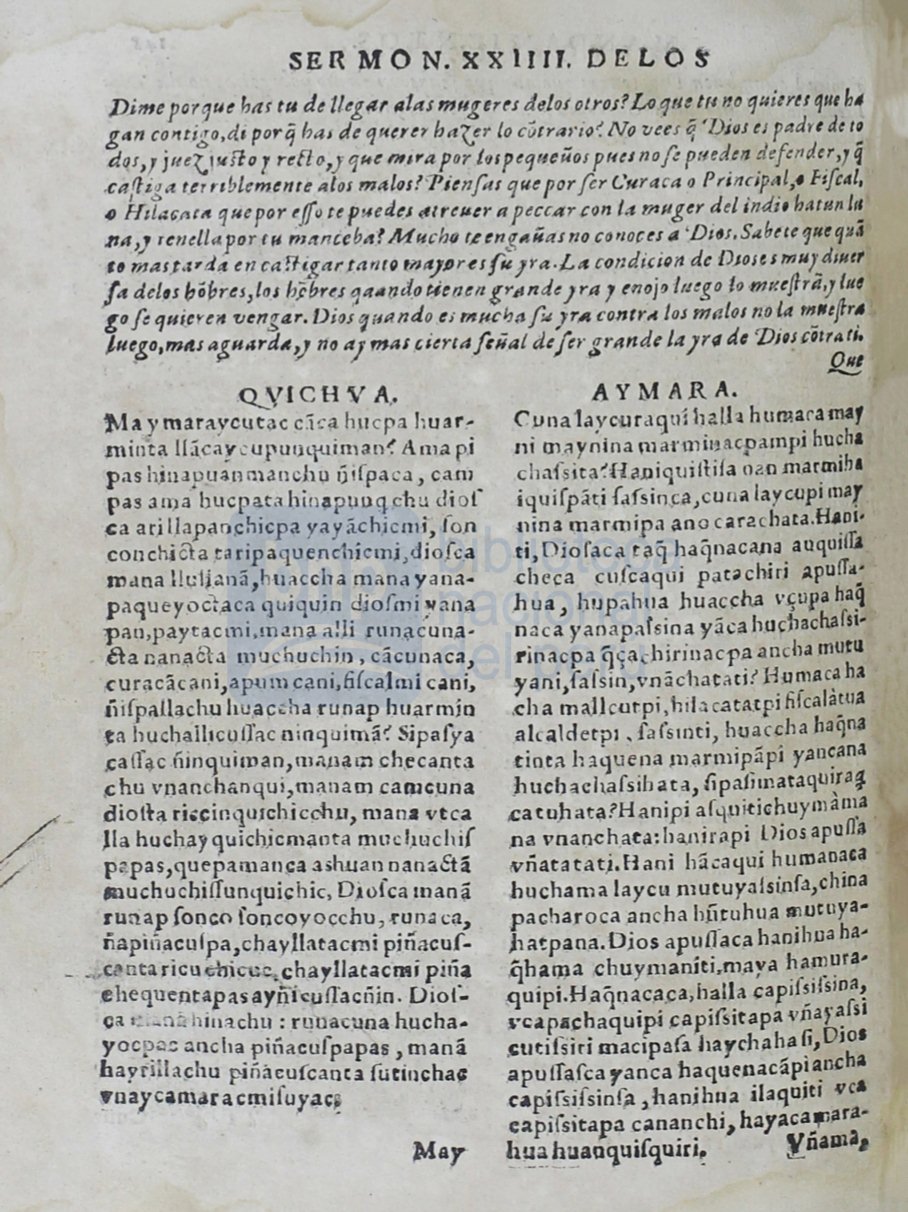 SERMON. XXIIII. DELOS
Dime porque has tu de llegar alas mugeres delos otros? Lo que tu no quieres que ha
gan contigo, di porq̃ has de querer hazer lo cõtrario? No vees q̃ Dios es padre de to
dos, y juez justo y recto, y que mira por los pequeños pues no se pueden defender, y q̃
castiga terriblemente alos malos? Piensas que por ser Curaca o Principal, o Fiscal,
o Hilacata que por esso te puedes atreuer a peccar con la muger del indio hatun lu
na, y tenella por tu manceba? Mucho te engañas no conoces a Dios. Sabete que quã
to mas tarda en castigar tanto mayor es su yra. La condicion de Dios es muy diuer
sa delos hõbres, los hõbres quando tienen grande yra y enojo luego lo muestrã, y lue
go se quieren vengar. Dios quando es mucha su yra contra los malos no la muestra
luego, mas aguarda, y no ay mas cierta señal de ser grande la yra de Dios cõtra ti.
Que
QVICHVA.
May maraycutac cãca hucpa huar-
minta llãcaycupunquiman? Ama pi
pas hinapuanmanchu ñispaca, cam
pas ama hucpata hinapunqchu dios
ca ari llapanchicpa yayãchicmi, son
conchicta taripaquenchicmi, diosca
mana llullanã, huaccha mana yana-
paqueyoctaca quiquin diosmi yana
pan, paytacmi, mana alli runacuna-
cta nanacta muchuchin, cãcunaca,
curacãcani, apum cani, fiscalmi cani,
ñispallachu huaccha runap huarmin
ta huchallicussac ninquimã? Sipasya
cassac ñinquiman, manam checanta
chu vnanchanqui, manam camcuna
diosta riccinquichicchu, mana vtca
lla huchayquichicmanta muchuchis
papas, quepamanca ashuan nanactã
muchuchissunquichic, Diosca manã
runap sonco soncoyocchu, runaca,
ñapiñacuspa, chayllatacmi piñacus-
canta ricuchicuc, chayllatacmi piña
chequentapas ayñicussacñin. Dios-
ca manã hinachu : runacuna hucha-
yocpac ancha piñacuspapas, manã
hayrillachu piñacuscanta sutinchac
vnaycamaracmi suyac;
May
AYMARA.
Cuna laycuraqui halla humaca may
ni maynina marminacpampi hucha
chassita? Haniquistisa nan marmiha
iquispãti sassinca, cuna laycupi may
nina marmipa ano carachata. Hani-
ti, Diosaca taq̃ haq̃nacana auquissa
checa cuscaqui patachiri apussa-
hua, hupahua huaccha vçupa haq̃
naca yanapassina yãca huchachassi-
rinacpa q̃çachirinacpa ancha mutu
yani, sassin, vnãchatati? Humaca ha
cha mallcutpi, hilacatatpi fiscalàtua
alcaldetpi, sassinti, huaccha haq̃na
tinta haquena marmipãpi yancana
huchachassihata, sipasimataquiraq̃
catuhata? Hanipi asquitichuymàma
na vnanchata: hanirapi Dios apussa
vñatatati. Hani hãcaqui humanaca
huchama laycu mutuyassinsa, china
pacharoca ancha hñtuhua mutuya-
hatpana. Dios apussaca hanihua ha-
q̃hama chuymaniti, maya hamura-
quipi. Haq̃nacaca, halla capissisina,
vcapachaquipi capissitapa vñayassi
cutissiri macipasa haychahasi, Dios
apussasca yanca haquenacãpi ancha
capississinsa, hanihua ilaquiti vca
capissitapa cananchi, hayacamara-
hua huanquisquiri.
Vñamã,